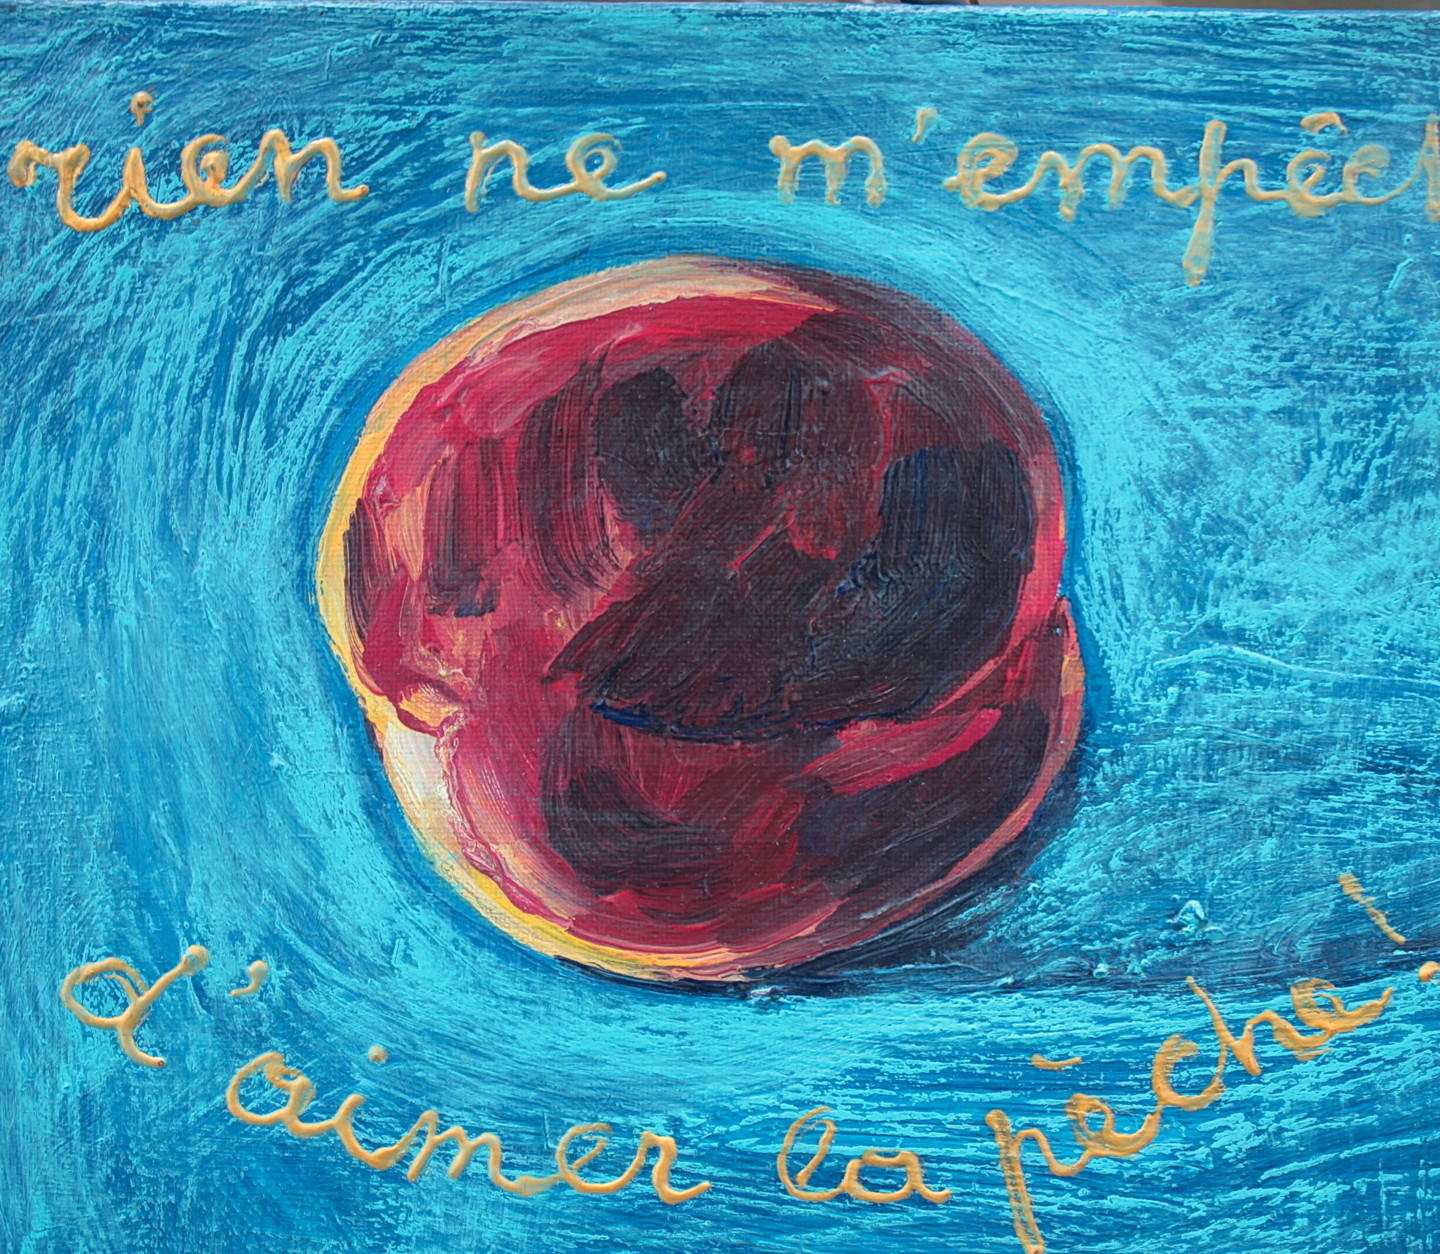 rien ne m'empêch
d'aimer la pêche!